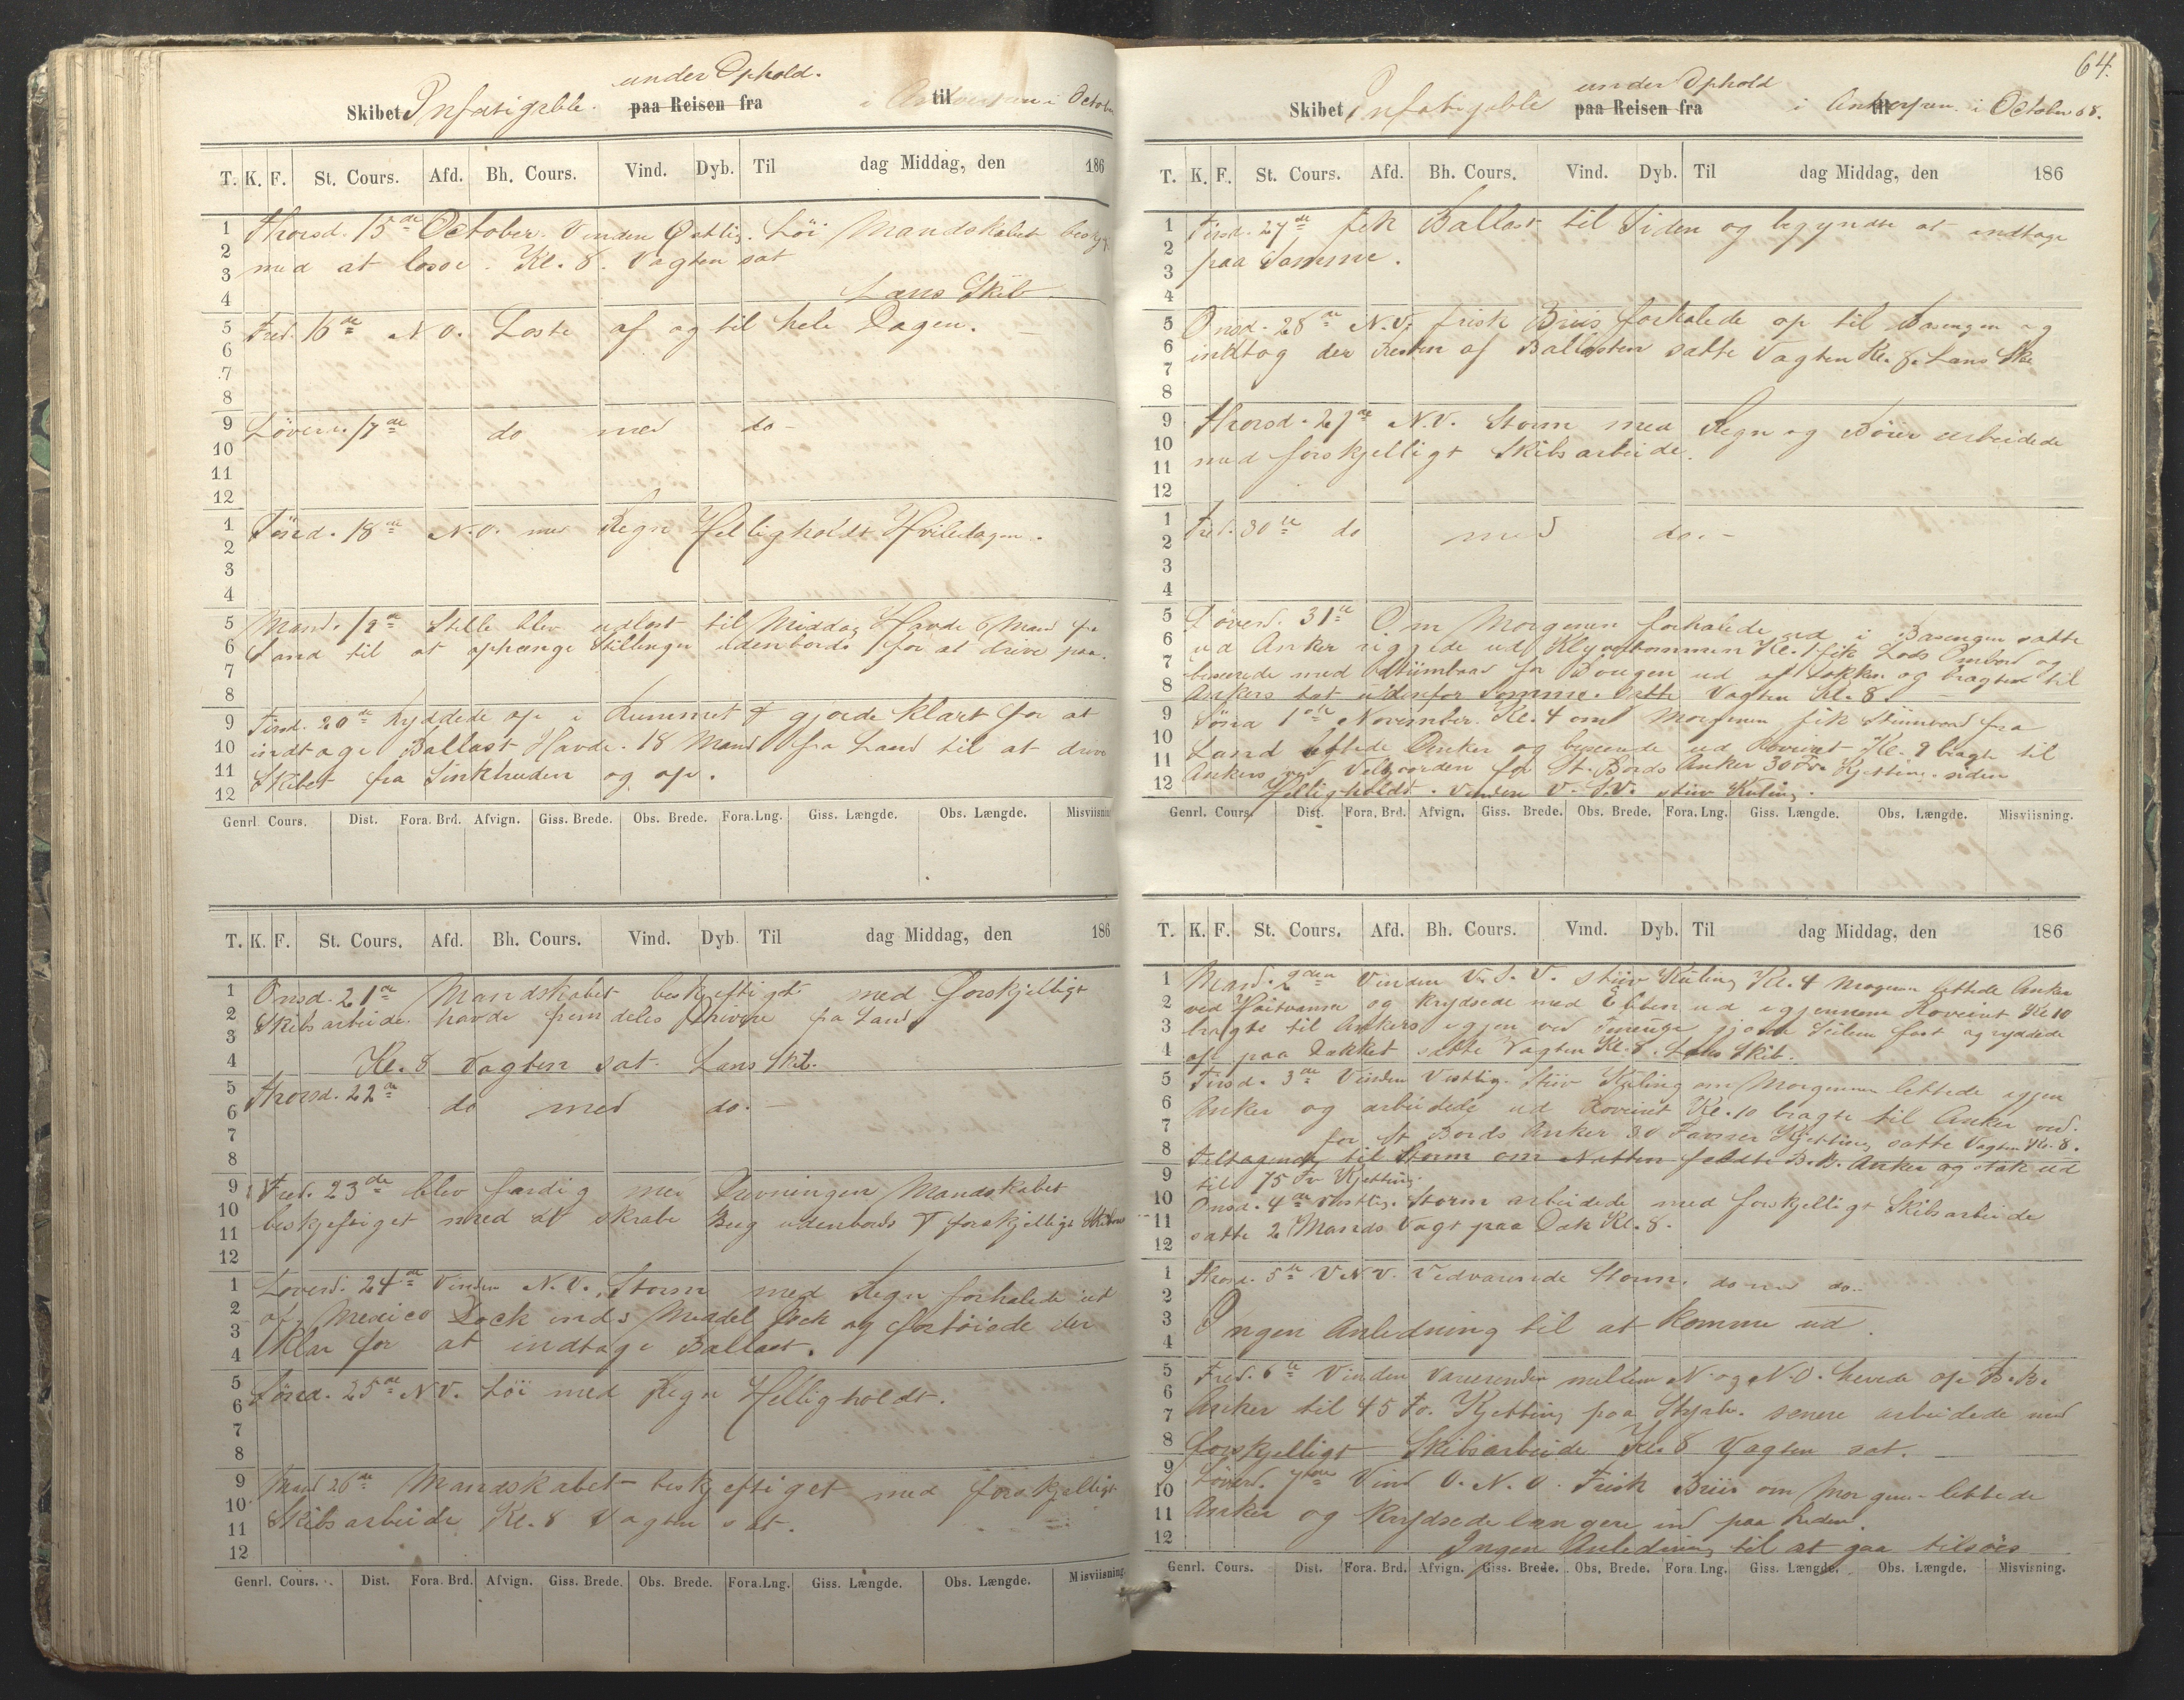 under Ophold.
Skibet Infatigable. paa Reisen fra i Antwerpen til i October
T. K. F. St. Cours. Afd. Bh. Cours. Vind. Dyb. Til dag Middag, den 186
1 2 3 4 5 6 7 8 9 10 11 12 1 2 3 4 5 6 7 8 9 10 11 12
Thorsd. 15de October. Vinden Østlig. Løi Mandskabet beskj.
med at losse. Kl. 8. Vagten sat
Læns Skib
Fred. 16de N O. Loste af og til hele Dagen.
Løverd. 17de do med do
Sønd. 18de N.O. med Regn Helligholdt Hviledagen.
Mand. 19de Stille blev udlost til Middag Havde 6 Mand fra
Land til at ophænge Stillinger udenbords for at drive paa.
Tirsd. 20de Ryddede op i Rummet & gjorde klart for at
indtage Ballast Havde 18 Mand fra Land til at drive
Skibet fra og op.
Genrl. Cours. Dist. Fora. Brd. Afvign. Giss. Brede. Obs. Brede. Fora. Lng. Giss. Længde. Obs. Længde. Misviisning
T. K. F. St. Cours. Afd. Bh. Cours. Vind. Dyb. Til dag Middag, den 186
1 2 3 4 5 6 7 8 9 10 11 12 1 2 3 4 5 6 7 8 9 10 11 12
Onsd. 21de Mandskabet beskjeftiget med Forskjelligt
Skibsarbeide havde fremdeles Drivere fra Land
Kl. 8 Vagten sat. Læns Skib.
Thorsd. 22de do med do.
Fred. 23de blev færdig med Drivningen Mandskabet
beskjeftiget med at skrabe Berg udenbords & forskjelligt Skibsar
Løverd. 24de Vinden N.V. Storm med Regn forhalede ud
af Mexico Dock ind i Middel Dock og fortøiede der
klar for at indtage Ballast.
Sønd. 25de N V. Løi med Regn Helligholdt.
Mand 26de Mandskabet beskjeftiget med forskjelligt
Skibsarbeide Kl. 8 Vagten sat.
Genrl. Cours. Dist. Fora. Brd. Afvign. Giss. Brede. Obs. Brede. Fora. Lng. Giss. Længde. Obs. Længde. Misviisning
64.
under Ophold
Skibet Infatigable paa Reisen fra i Antwerpen til i October 68.
T. K. F. St. Cours. Afd. Bh. Cours. Vind. Dyb. Til dag Middag, den 186
1 2 3 4 5 6 7 8 9 10 11 12 1 2 3 4 5 6 7 8 9 10 11 12
Tirsd. 27de fik Ballast til Siden og begyndte at indtage
paa Samme.
Onsd. 28de N.V. frisk Briis forhalede op til Basengen og
indtog der Resten af Ballasten satte Vagten Kl. 8. Læns Skib
Thorsd. 29de N.V. Storm med Regn og Böier arbeidede
med forskjelligt Skibsarbeide.
Fred. 30te do med do.
Løverd. 31te Om Morgenen forhalede ud i Basengen satte
ud Anker riggede ud Klyverbommen Kl. 1 fik Lods Ombord og
buxerede med Stiimbaad for Bougen ud af Dokken og bragte til
Ankers tæt udenfor Samme. Satte Vagten Kl. 8.
Sønd 1ste November. Kl. 4 om Morgenen fik Stiimbaad fra
Land lettede Anker og buxerede ud Reveiret Kl. 9 bragte til
Ankers ved for St. Bords Anker 30 Fv. Kjetting. siden
Helligholdt. Vinden V.S.V. stiiv Kuling.
Genrl. Cours. Dist. Fora. Brd. Afvign. Giss. Brede. Obs. Brede. Fora. Lng. Giss. Længde. Obs. Længde. Misviisning.
T. K. F. St. Cours. Afd. Bh. Cours. Vind. Dyb. Til dag Middag, den 186
1 2 3 4 5 6 7 8 9 10 11 12 1 2 3 4 5 6 7 8 9 10 11 12
Mand. 2den Vinden V.S.V. stiiv Kuling Kl. 4 Morgen lettede Anker
ved Høitvande og krydsede med Ebben ud igjennem Reveiret Kl 10
bragte til Ankers igjen ved gjorde Seilene fast og ryddede
op paa Dækket satte Vagten Kl. 8. Læns Skib.
Tirsd. 3de Vinden Vestlig. Stiiv Kuling om Morgenen lettede igjen
Anker og arbeidede ud Reveiret Kl. 10 bragte til Anker ved.
for St Bords Anker 30 Favner Kjetting satte Vagten Kl. 8.
Tiltagende til Storm om Natten feldte B.B. Anker og stak ud
til 75 Fv Kjetting.
Onsd. 4de Vestlig. Storm arbeidede med forskjelligt Skibsarbeide
satte 2 Mands Vagt paa Dæk Kl. 8.
Thorsd. 5te V N V. Vedvarende Storm. do med do.
Ingen Anledning til at komme ud.
Fred. 6te Vinden varierende mellem N. og N.O. hevede op B.B.
Anker til 45 Fv. Kjetting paa Styrb. senere arbeidede med
forskjelligt Skibsarbeide Kl. 8 Vagten sat.
Løverd. 7de Vind V.N.V. Frisk Briis om Morgenen lettede
Anker og krydsede længere ind paa Reden.
Ingen Anledning til at gaa tilsøes
Genrl. Cours. Dist. Fora. Brd. Afvign. Giss. Brede. Obs. Brede. Fora. Lng. Giss. Længde. Obs. Længde. Misviisning.